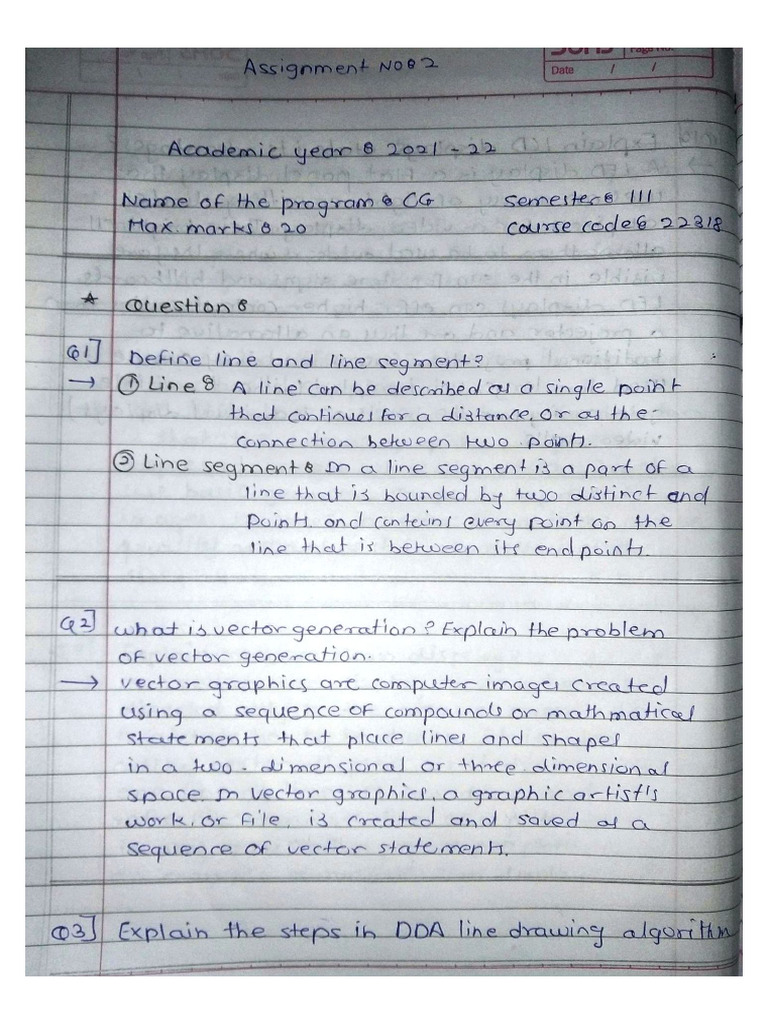 Page No.
Date / /
Assignment No: 2
Academic year : 2021 - 22
Name of the program : CG semester : III
Max. marks : 20 course code : 22318
* Question :
Q1] Define line and line segment?
→ ① Line : A line can be described as a single point
that continues for a distance, or as the
connection between two points.
② Line segment : In a line segment is a part of a
line that is bounded by two distinct and
points. and contains every point on the
line that is between its endpoints.
Q2] what is vector generation? Explain the problem
of vector generation.
→ vector graphics are computer images created
using a sequence of compounds or mathmatical
statements that place lines and shapes
in a two-dimensional or three dimensional
space. In vector graphics, a graphic artist's
work, or file, is created and saved as a
sequence of vector statements.
Q3] Explain the steps in DDA line drawing algorithm